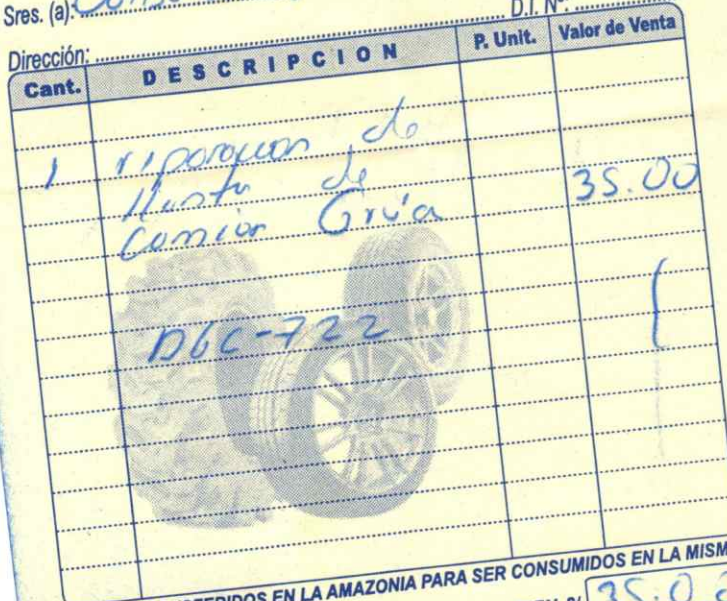 Sres. (a):
D.I. Nº.
Dirección:
Cant. DESCRIPCION P. Unit. Valor de Venta
1 riparacion de
llanta de 35.00
Camion Grúa
D6C-722
EN LA AMAZONIA PARA SER CONSUMIDOS EN LA MISM
35.0